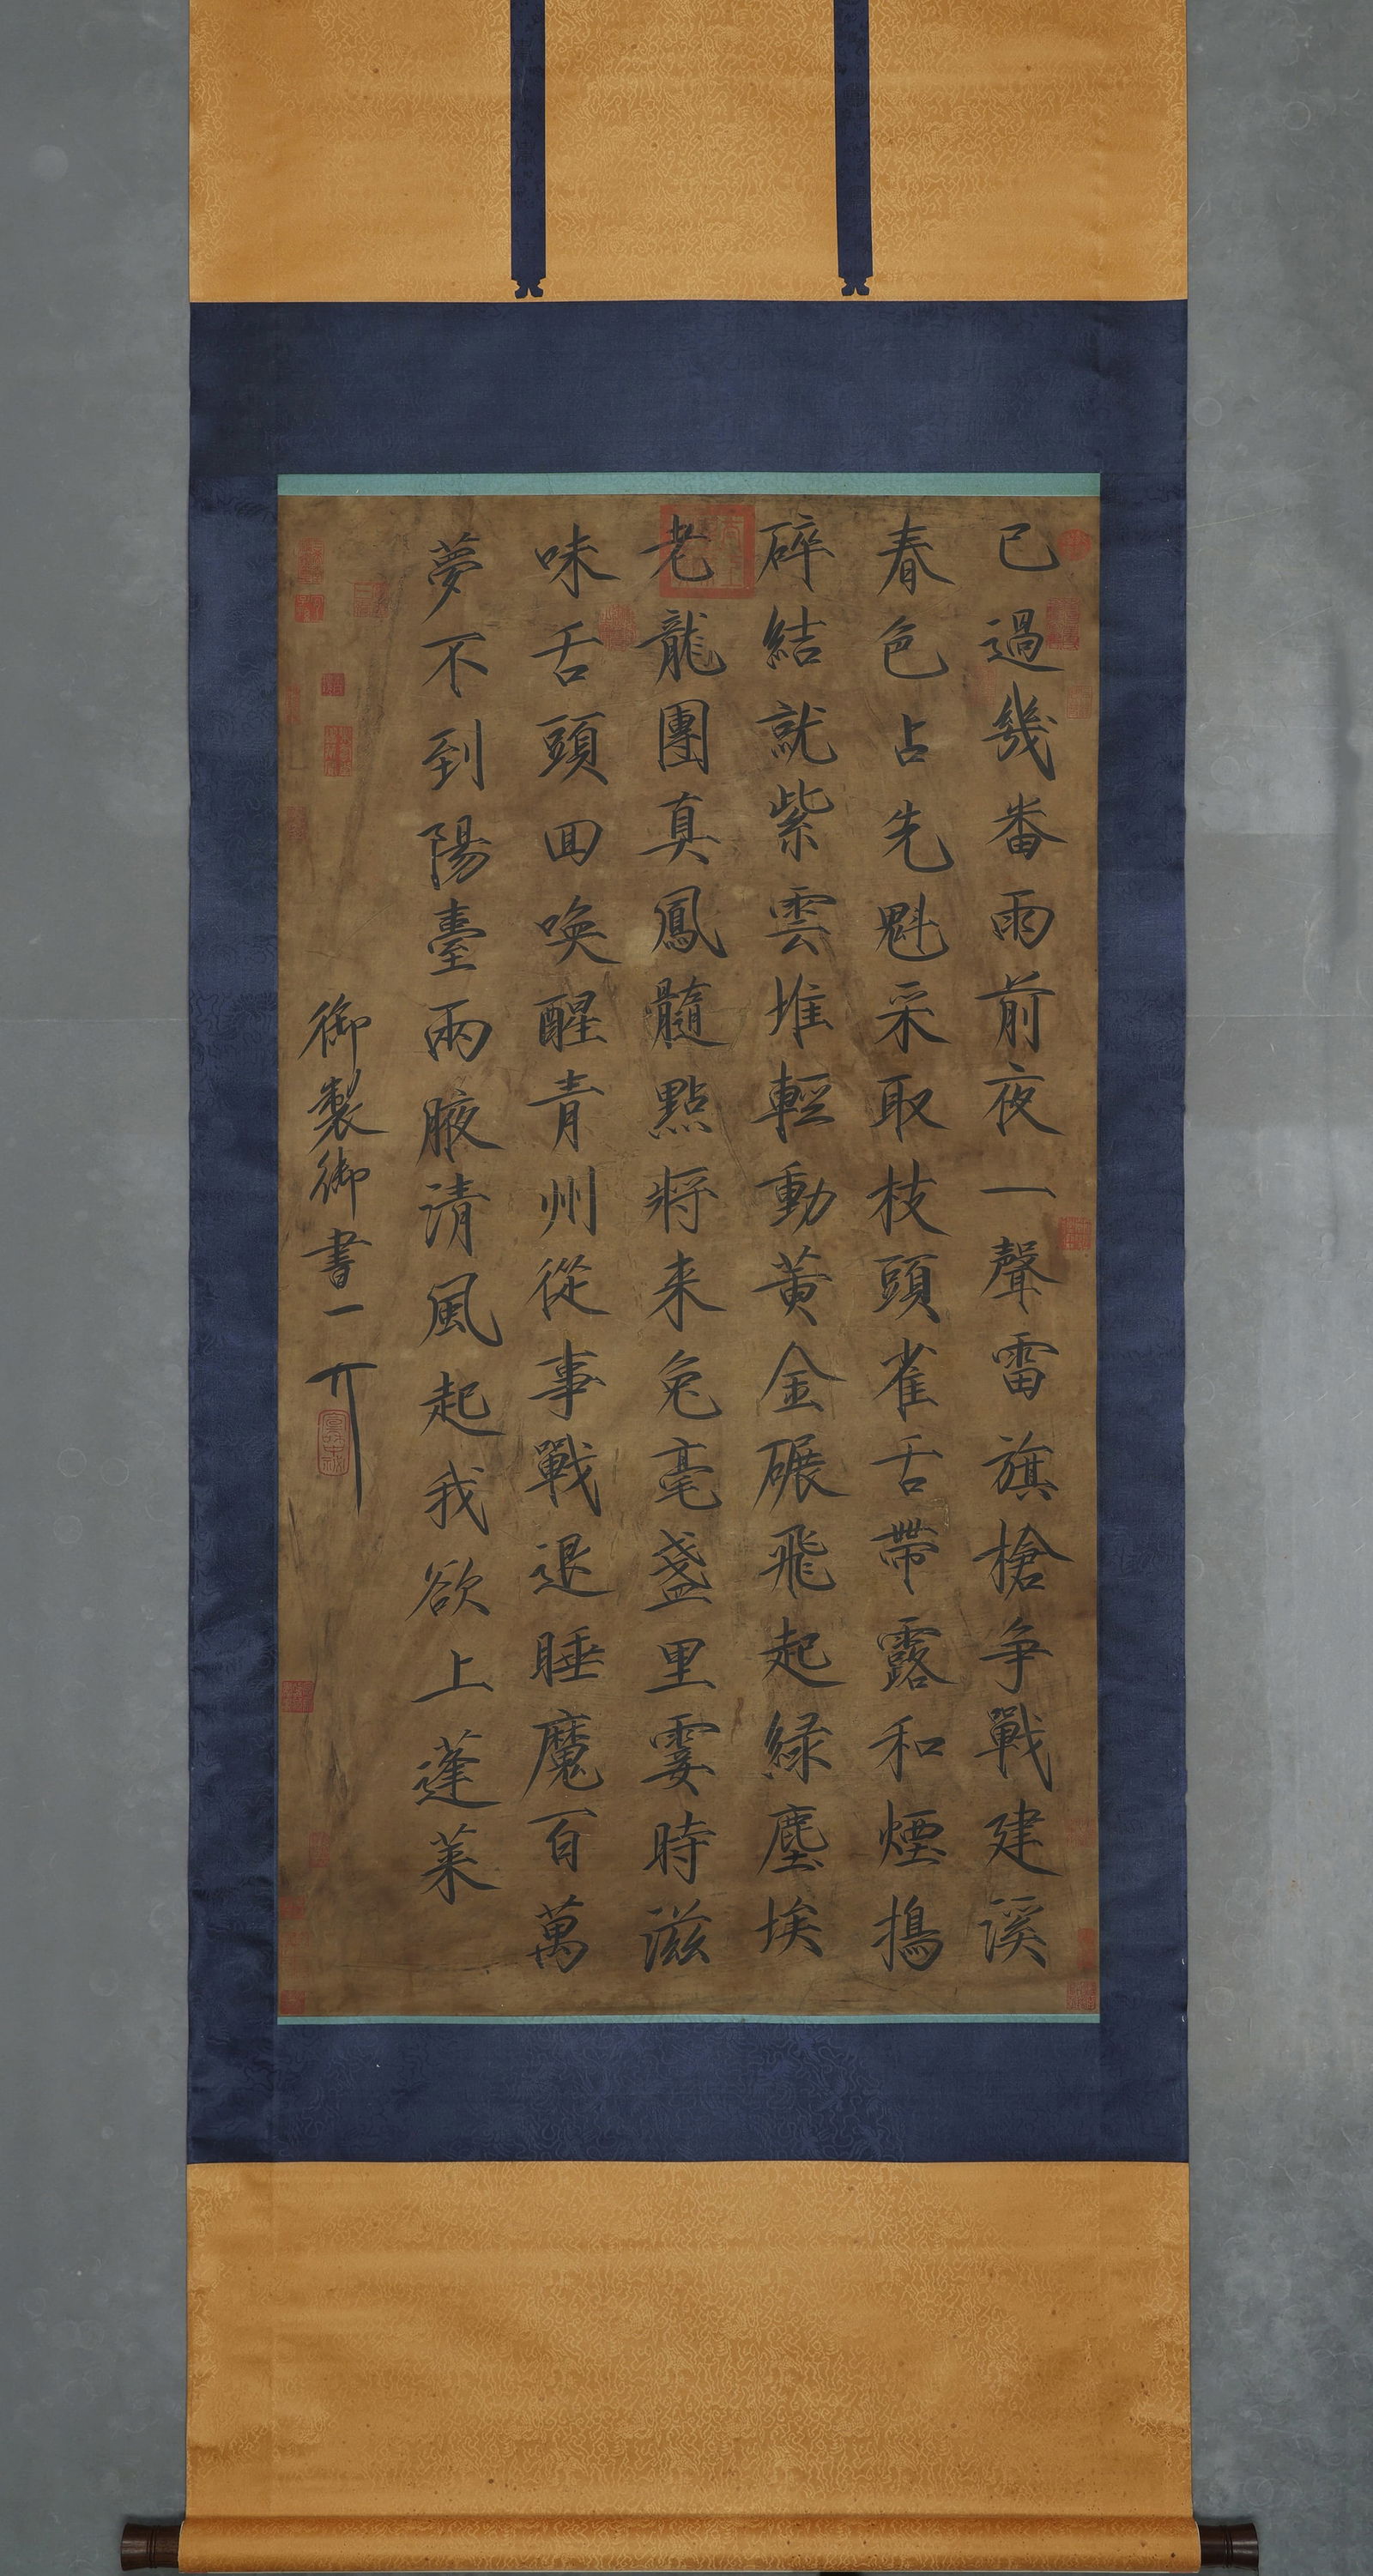 已過幾番雨前夜一聲雷旗槍争戰建溪
春色占先魁采取枝頭雀舌帶露和煙搗
碎結就紫雲堆輕動黃金碾飛起緑塵埃
老龍團真鳳髓點將来兔毫盞里霎時滋
味舌頭回喚醒青州從事戰退睡魔百萬
夢不到陽臺兩腋清風起我欲上蓬萊
御製御書一